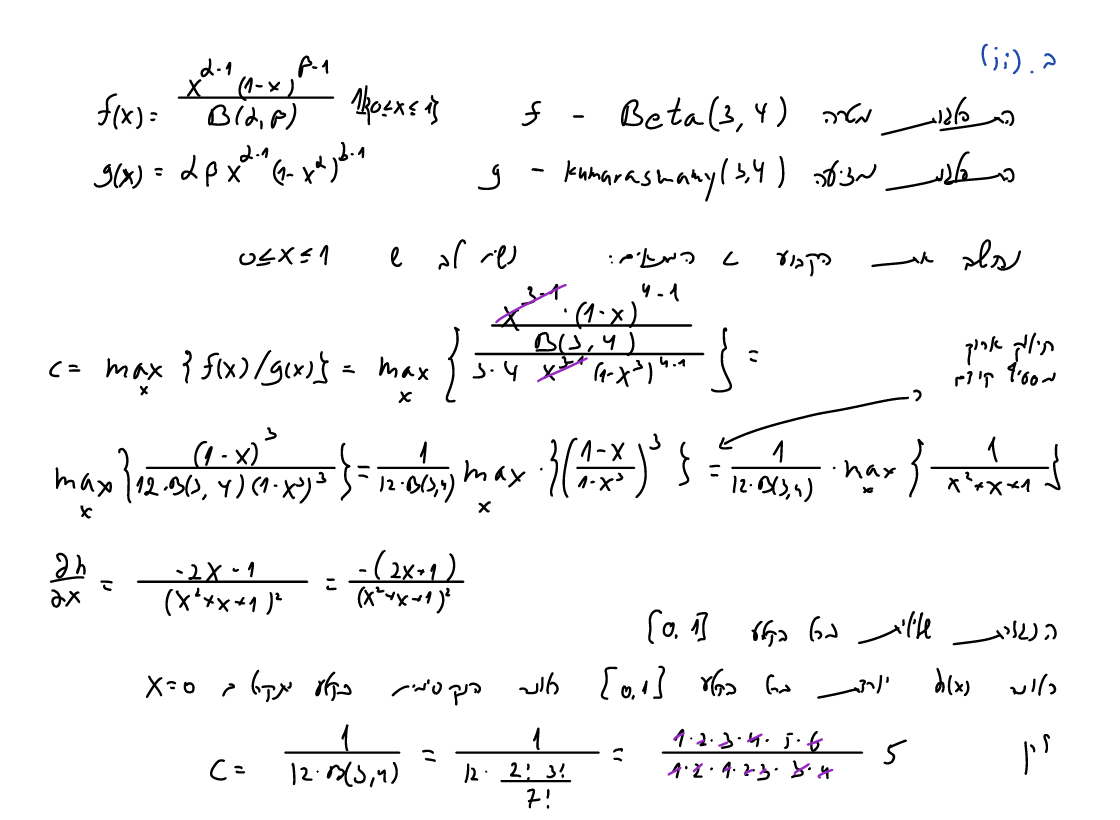 ב. (ii)
f(x) = \frac{x^{α-1}(1-x)^{β-1}}{B(α,β)} 1{0≤x≤1} f - Beta(3,4) מטרה
g(x) = αβx^{α-1}(1-x^α)^{β-1} g - kumaraswamy(3,4) מציעה
הקבוע c המתאים: נשים לב ש 0≤x≤1
c = max_x {f(x)/g(x)} = max_x { \frac{\frac{x^{3-1}·(1-x)^{4-1}}{B(3,4)}}{3·4 x^{3-1}(1-x^3)^{4-1}} } =
חילוק ארוך
מסעיף קודם
max_x { \frac{(1-x)^3}{12·B(3,4)(1-x^3)^3} } = \frac{1}{12·B(3,4)} max_x · { (\frac{1-x}{1-x^3})^3 } = \frac{1}{12·B(3,4)} · max_x { \frac{1}{x^2+x+1} }
\frac{∂h}{∂x} = \frac{-2x-1}{(x^2+x+1)^2} = \frac{-(2x+1)}{(x^2+x+1)^2}
הנגזרת שלילית בכל בקטע [0,1]
כלומר h(x) יורדת בכל בקטע [0,1] כלומר המקסימום בקטע מתקבל ב x=0
לכן C = \frac{1}{12·B(3,4)} = \frac{1}{12·\frac{2!3!}{7!}} = \frac{1·2·3·4·5·6}{1·2·1·2·3·3·4} 5